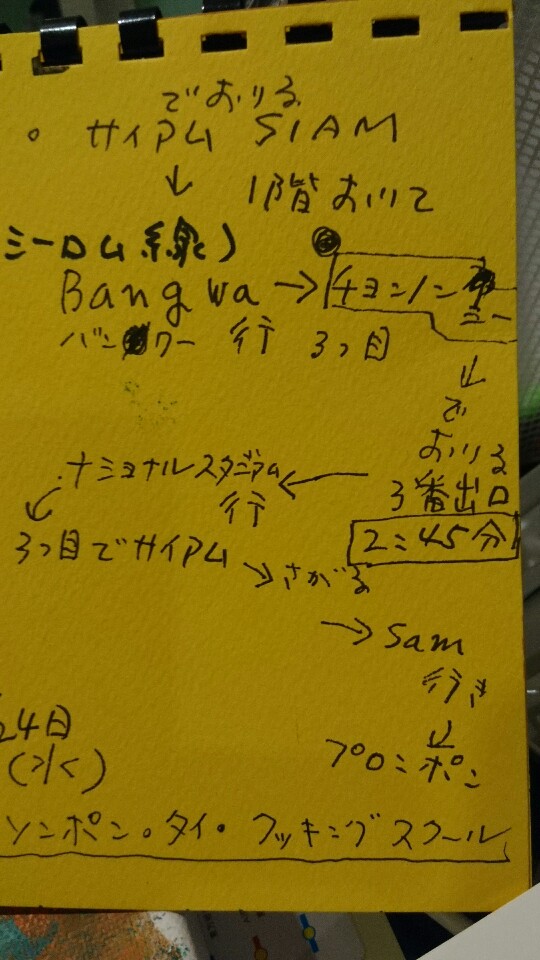 でおりる
・ サイアム SIAM
↓
1階おりて
ミーロム線)
Bang wa → チョンノン
シー
バンワー 行 3つ目
↓
で
おりる
3番出口
2:45分
←
ナショナルスタジアム
行
↓
3つ目でサイアム
→ さがる
→ Sam
行き
↓
プロンポン
24日
(水く)
ソンポン・タイ・クッキングスクール